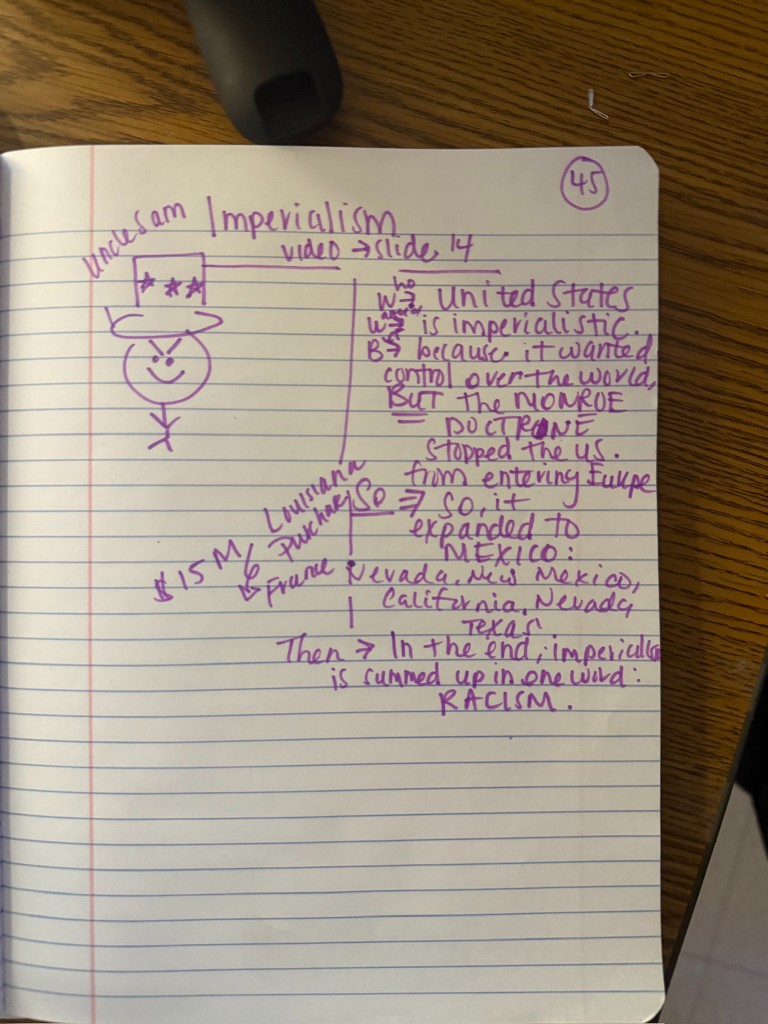 45
Uncle Sam
Imperialism
video → slide 14
Who → United States
W → is imperialistic.
B → because it wanted
control over the world,
BUT the MONROE
DOCTRONE
stopped the us.
from entering Eukpe
So ⇒ so, it
expanded to
MEXICO:
Nevada, New Mexico,
California, Nevada,
Texas
Louisiana
Purchase
$15M
France
Then → In the end, imperialism
is summed up in one word:
RACISM.